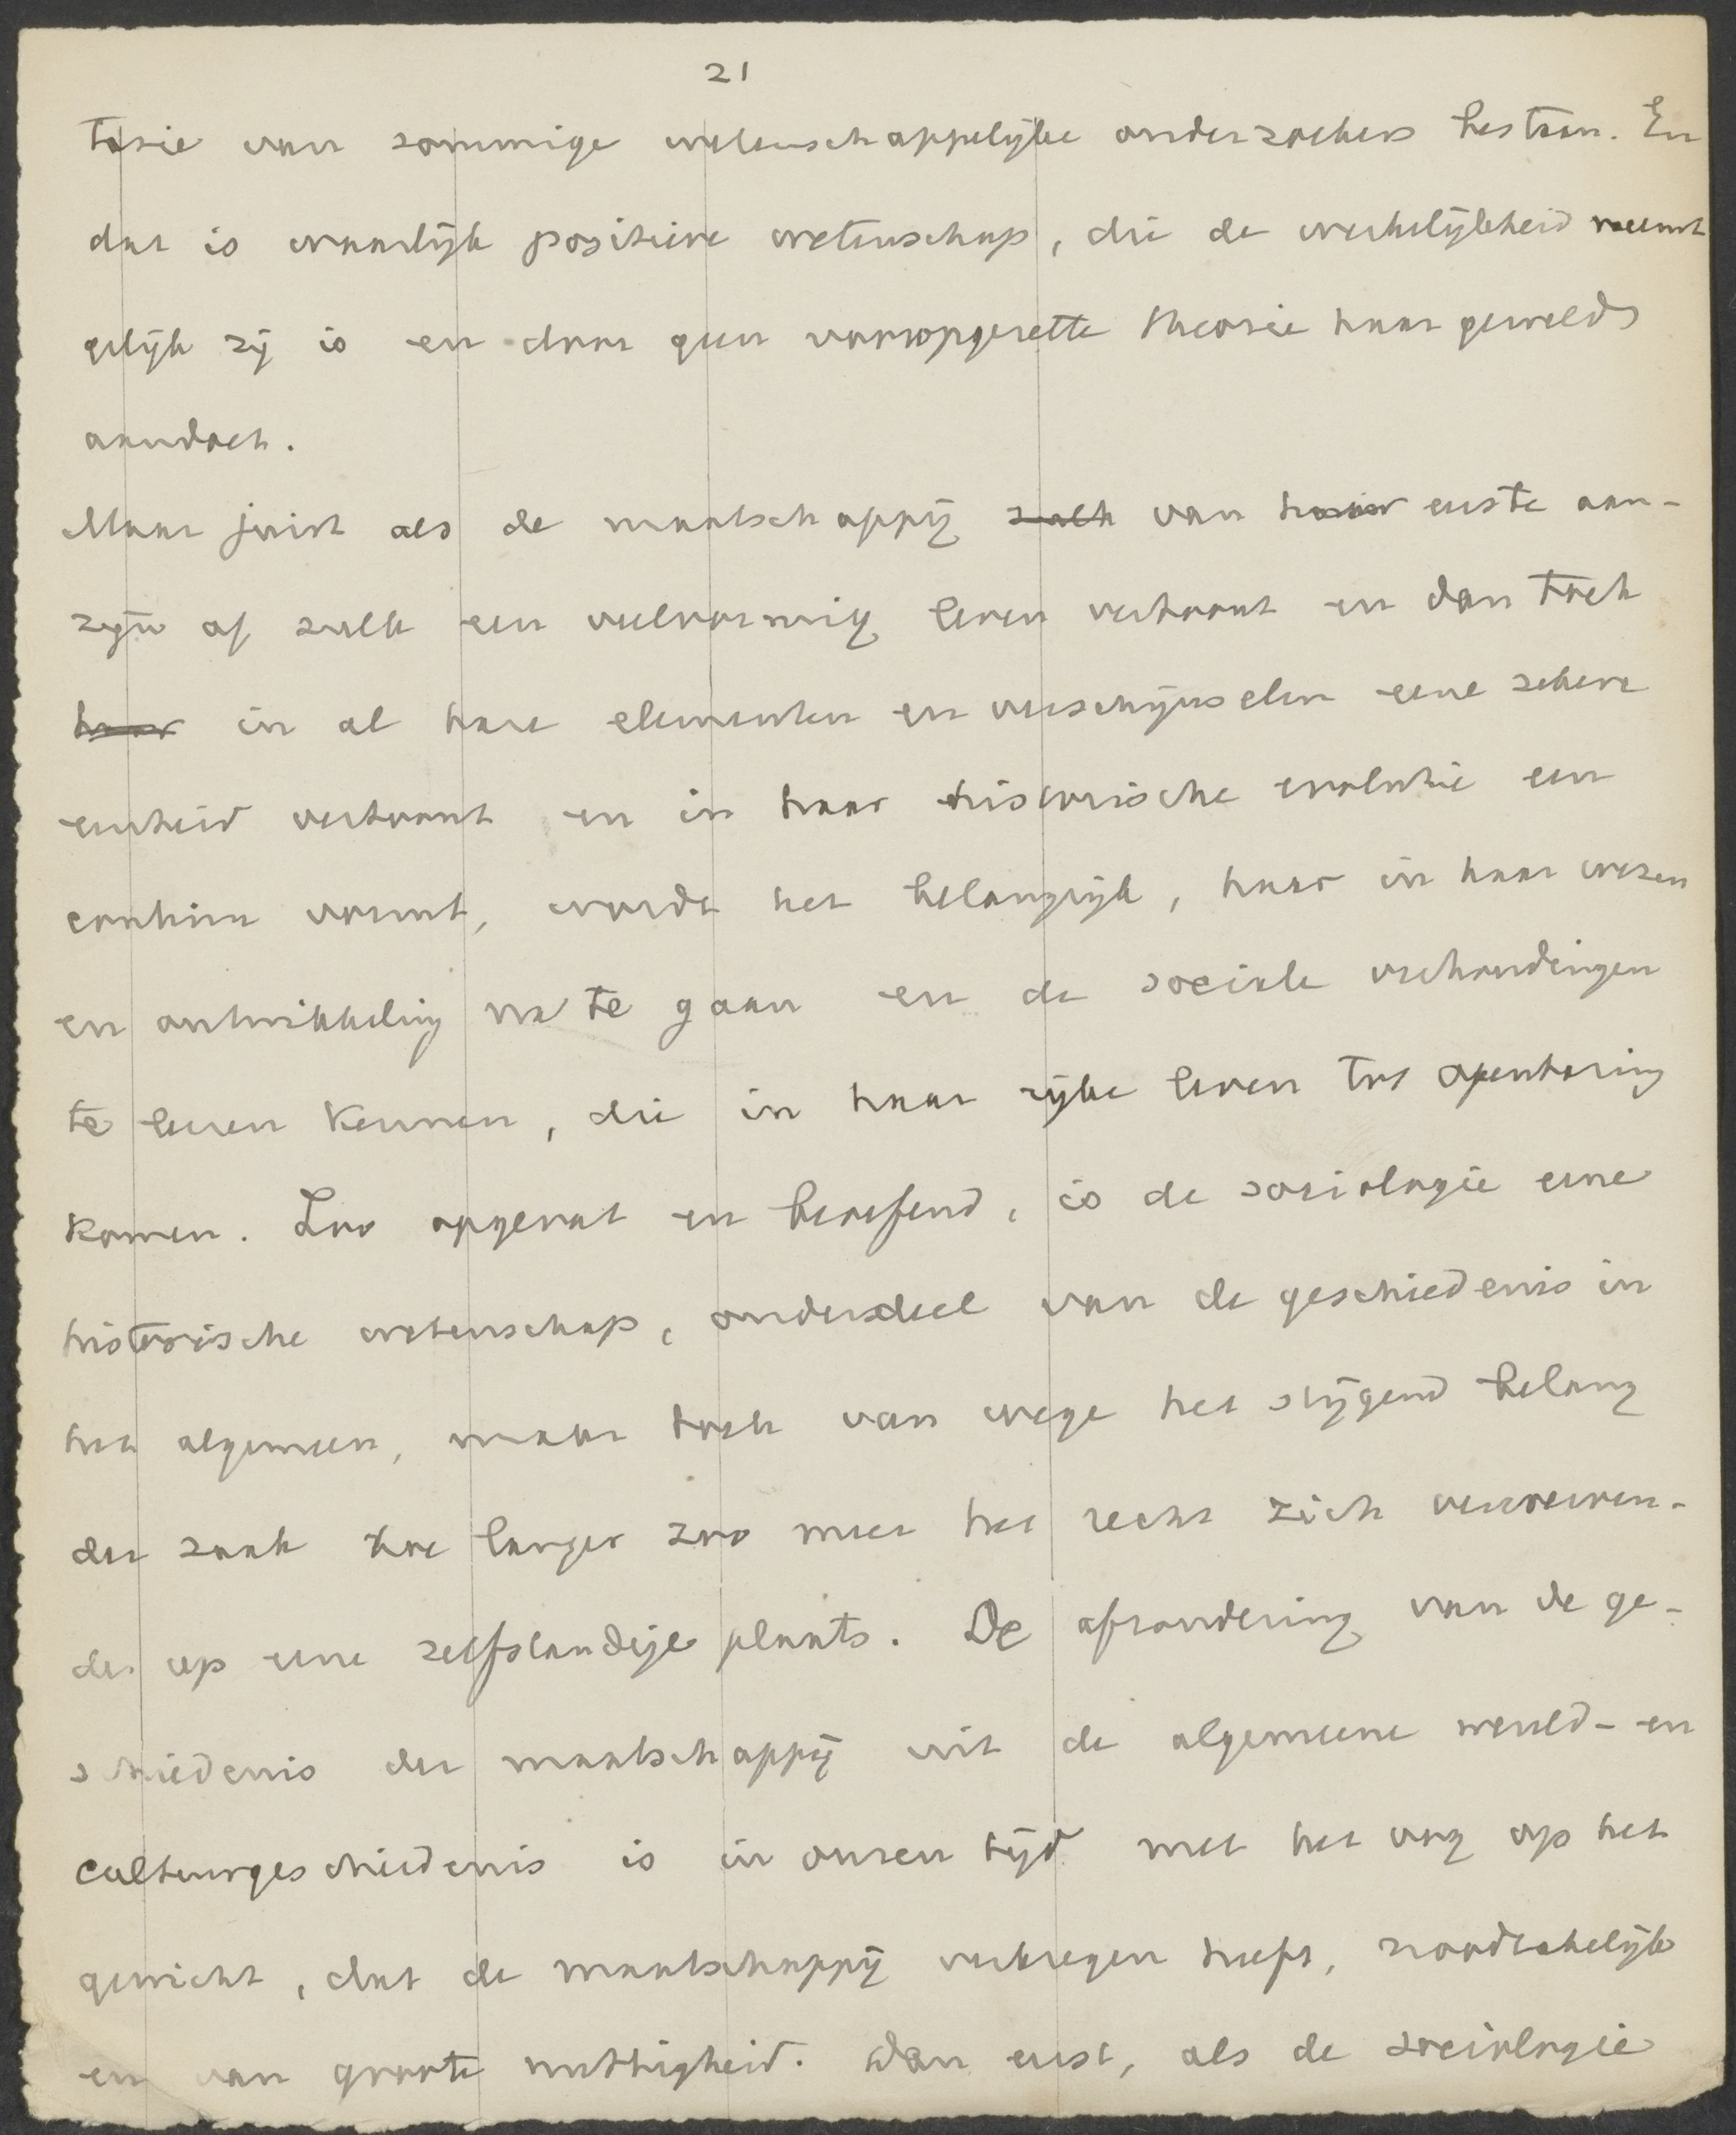 21
tasie van sommige wetenschappelijke onderzoekers bestaan. En
dat is waarlijk positieve wetenschap, die de werkelijkheid neemt
gelijk zij is en door geen vooropgezette theorie haar geweld
aandoet.
Maar juist als de maatschappij zulk van haar eerste aan-
zijn af zulk een veelvormig leven vertoont en dan toch
haar in al hare elementen en verschijnselen eene zekere
eenheid vertoont en in haar historische evolutie een
continu vormt, wordt het belangrijk, haar in haar wezen
en ontwikkeling na te gaan en de sociale verhoudingen
te leeren kennen, die in haar rijke leven tot openbaring
komen. Zoo opgevat en beoefend, is de sociologie eene
historische wetenschap, onderdeel van de geschiedenis in
het algemeen, maar toch van wege het stijgend belang
der zaak hoe langer zoo meer het recht zich verwerven-
de op eene zelfstandige plaats. De afzondering van de ge-
schiedenis der maatschappij uit de algemeene wereld- en
cultuurgeschiedenis is in onzen tijd met het oog op het
gewicht, dat de maatschappij verkregen heeft, noodzakelijk
en van groote nuttigheid. Dan eerst, als de sociologie